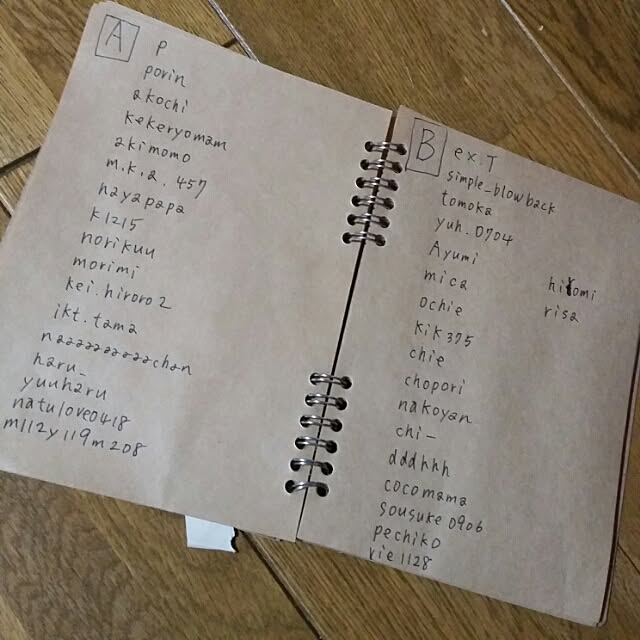 A
P
porin
akochi
kekeryomam
akimomo
m.k.a.457
hayapapa
k1215
norikuu
morimi
kei.hiroro2
ikt.tama
naaaaaaaaachan
haru_
yuuharu
natulove0418
m112y119m208
B
ex:T
simple_blowback
tomoka
yuh.0704
Ayumi
mica
ochie
kik375
chie
chopori
nakoyan
chi_
dddhhh
cocomama
sousuke0906
pechiko
rie1128
hitomi
risa